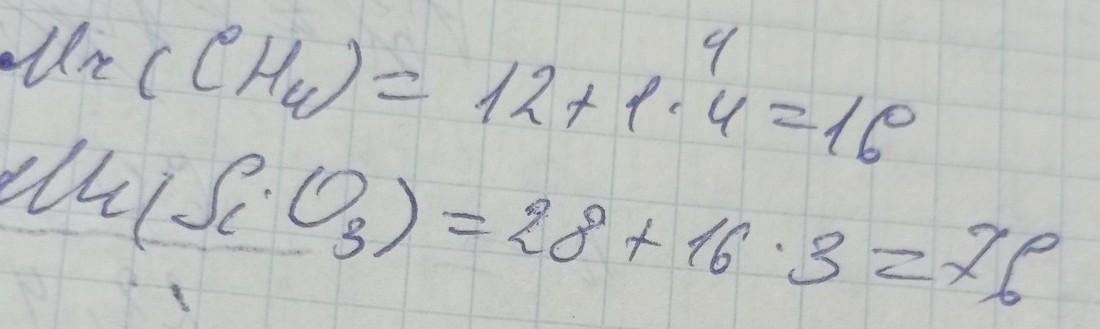 4
Mr(CH₄) = 12 + 1 · 4 = 16
Mr(SiO₃) = 28 + 16 · 3 = 76